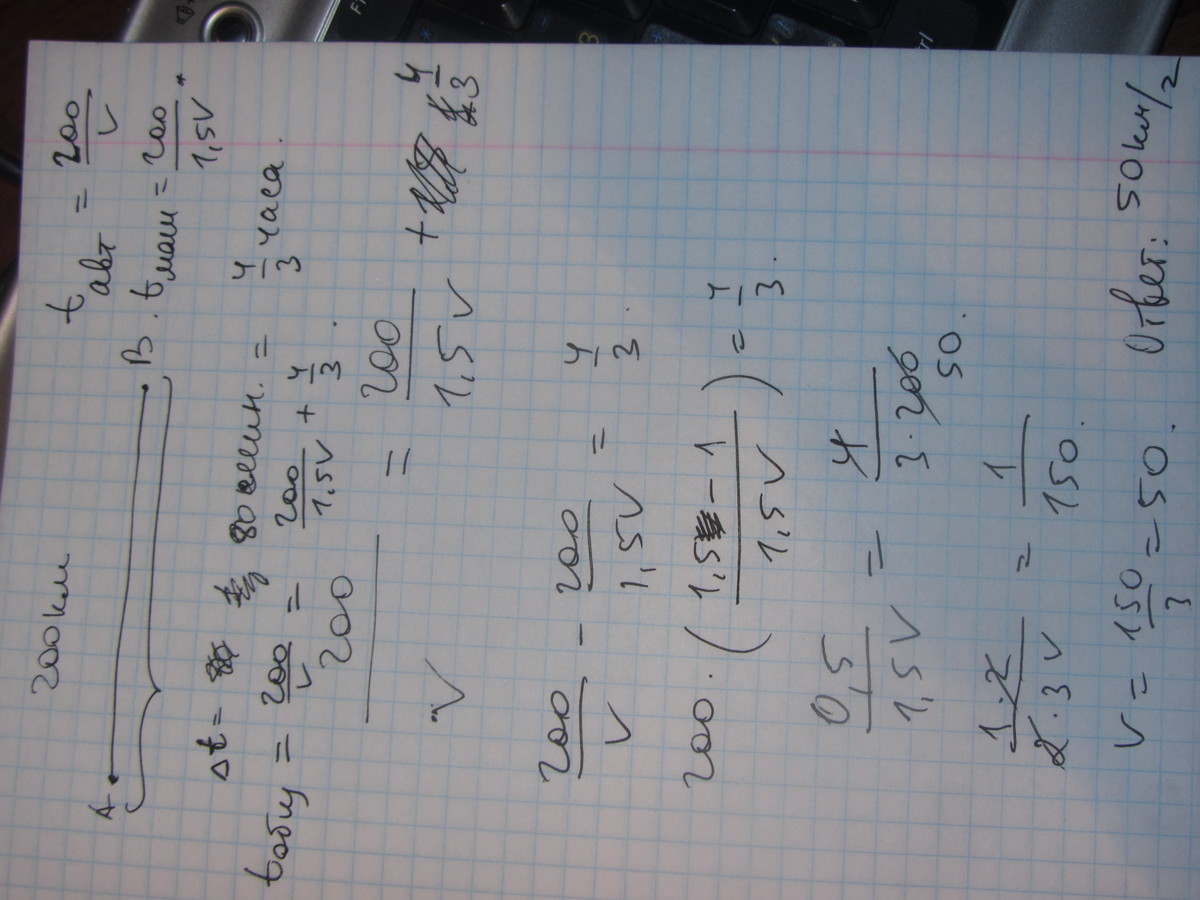 200км
t авт = 200/v
A B. t маш = 200/1,5v
Δt = 80 мин. = 4/3 часа.
t общ = 200/v = 200/1,5v + 4/3.
200/v = 200/1,5v + 4/3
200/v - 200/1,5v = 4/3.
200 · (1,5 - 1/1,5v) = 4/3.
0,5/1,5v = 4/3·200 50.
1·2/2·3v = 1/150.
v = 150/3 = 50. Ответ: 50км/